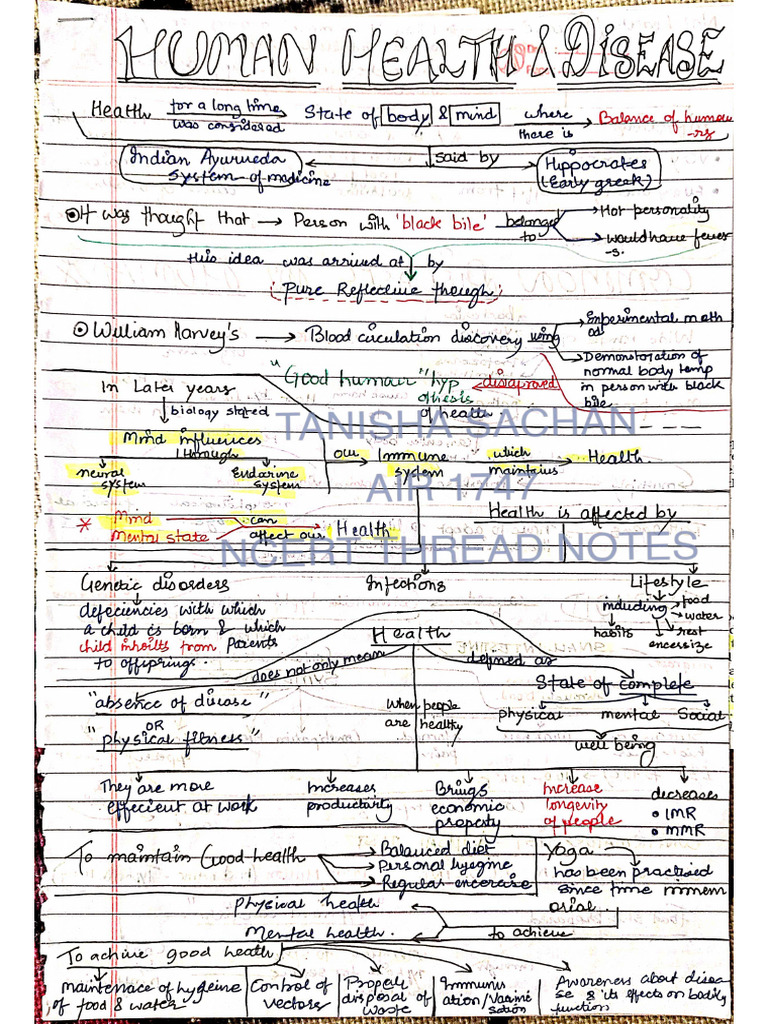 HUMAN HEALTH & DISEASE
Health for a long time was considered → State of body & mind where there is → Balance of humou
-rs
Indian Ayurveda System of medicine ← said by → Hippocrates (Early greek)
It was thought that → Person with 'black bile' belonged to → Hot personality
→ would have fever
-s.
this idea was arrived at by
Pure Reflective though
William Harvey's → Blood circulation discovery using → Experimental meth
od
→ Demonstoration of
normal body temp
in person with black
bile
"Good humair" hyp
othesis
of health
← disaproved
In Later years
↓ biology stated
Mind influences
through
neural
system
Endocrine
System
our → Immune
system
which
maintains → Health.
* Mind
Mental state
can
affect our → Health
TANISHA SACHAN
AIR 1747
NCERT THREAD NOTES
Health is affected by
Genetic disorders
Infections
Lifestyle
defeciencies with which
a child is born & which
child inherits from Parents
to offsprings.
including → food
→ water
→ rest
habits
excersize
Health
does not only mean
"absence of disease"
OR
"physical fitness"
defined as
State of complete
physical mental Social
well being
When people
are healthy
They are more
effecient at work
Increases
productivity
Brings
economic
property
Increase
longevity
of people
decreases
• IMR
• MMR
To maintain Good health → Balanced diet
→ Personal hyegine
→ Regular excercise
Yoga
has been practised
since time immem
orial.
to achieve
physical health
Mental health.
To achive good heath
maintenace of hygeine
of food & water
Control of
vectors
Proper
disposal of
waste
Immunis
ation/Vaccini
sation
Awareness about disea
se & its effects on bodily
function